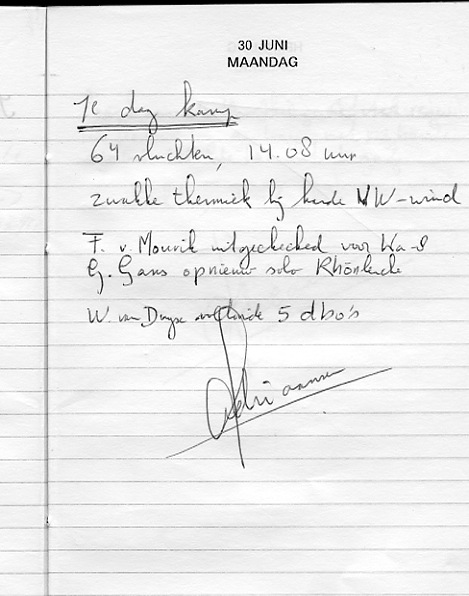 30 JUNI
MAANDAG
1e dag kamp
64 vluchten, 14.08 uur
zwakke thermiek bij harde NW-wind
F. v. Mourik uitgechecked voor Ka-8
G. Gans opnieuw solo Rhönlerche
W. van Duyse voltooide 5 dbo's
Adriaansen